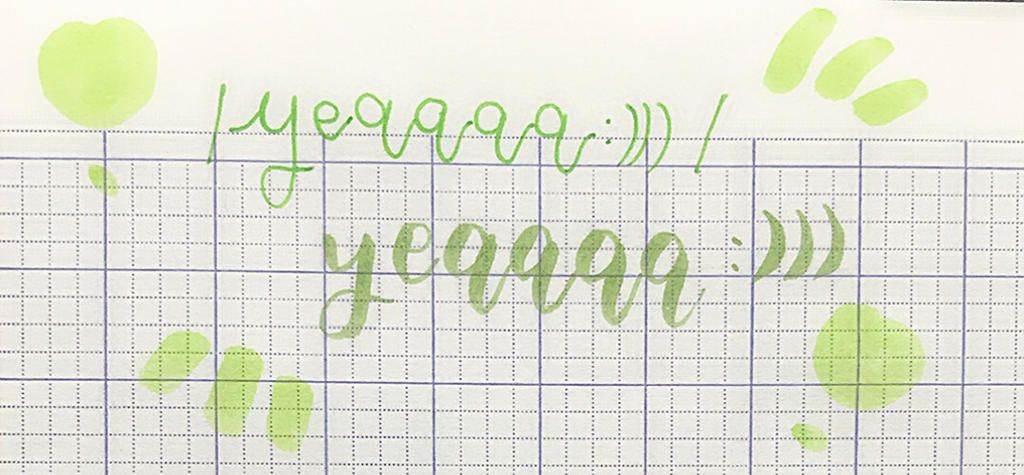 /yeaaaa:)))/
yeaaaa:)))